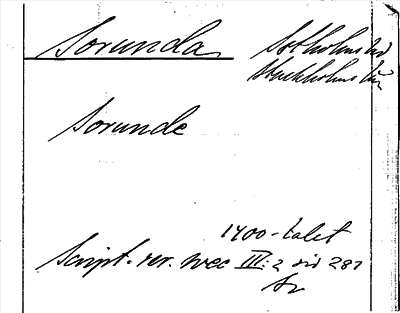 Sorunda Sotholms hd
Stockholms län
Sorunde
1400-talet
Script. rer. svec III:2 sid 287